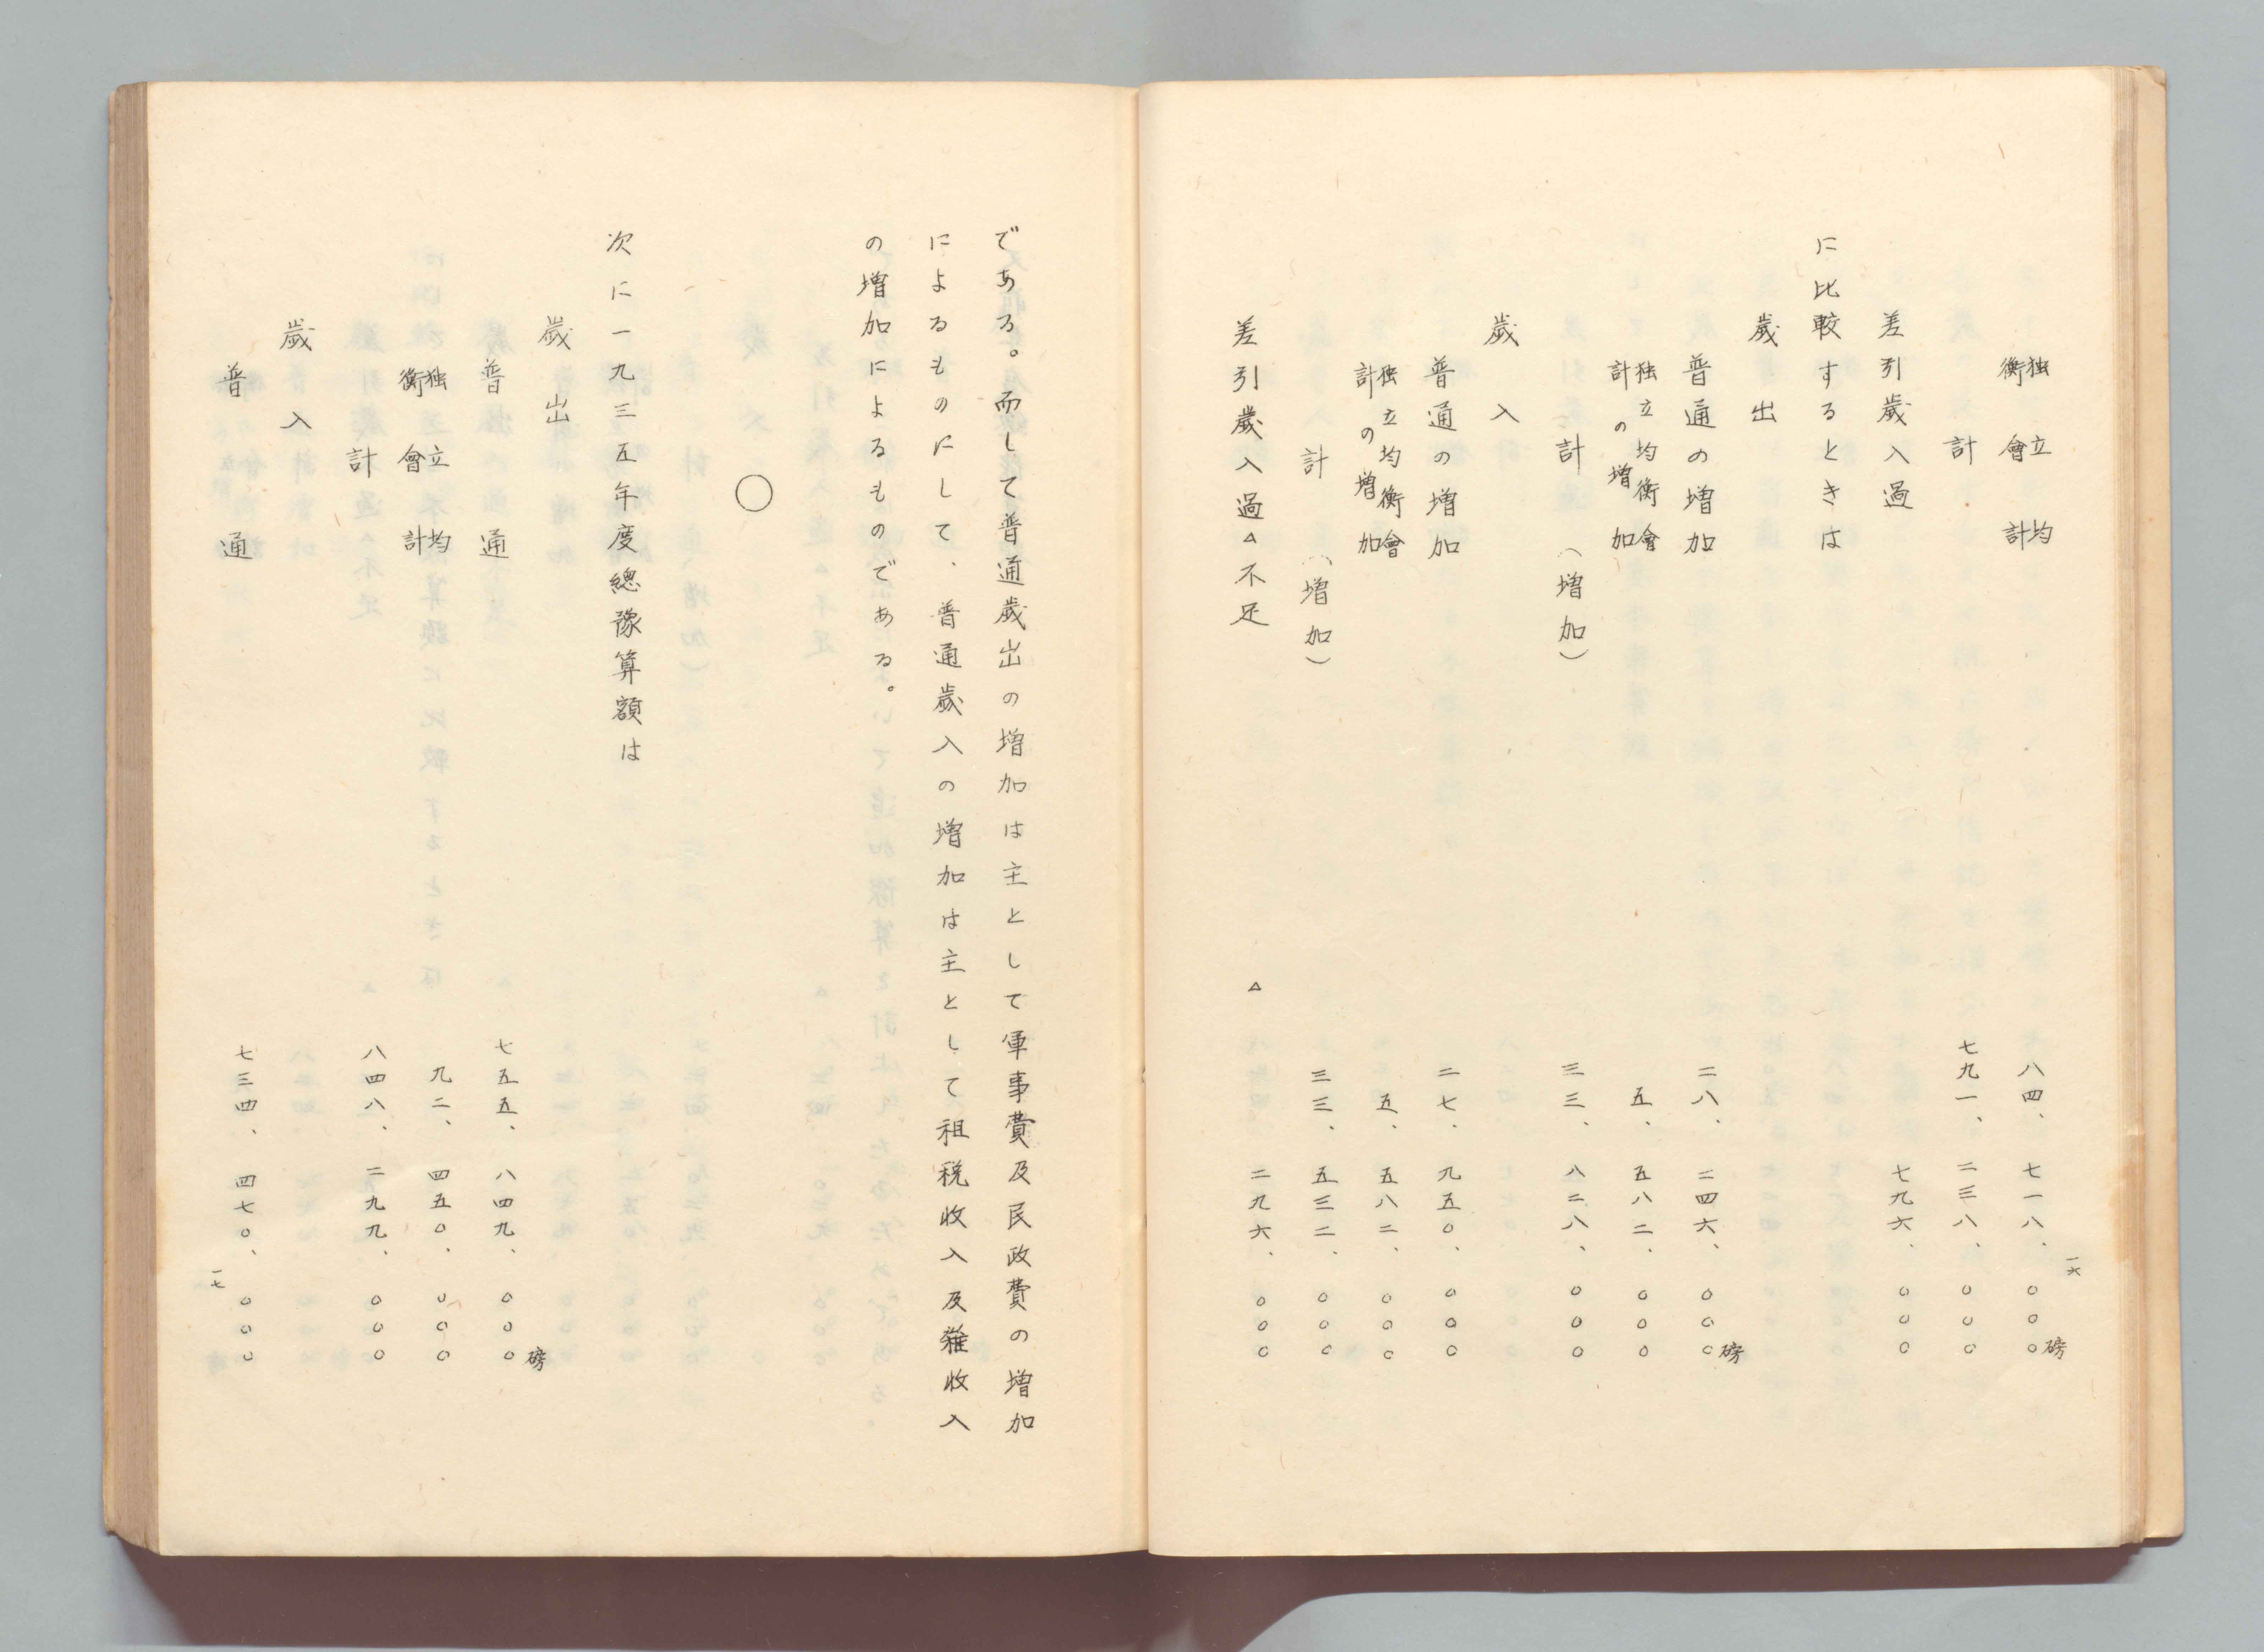 一六
独立均衡會計 八四、七一八、〇〇〇磅
計 七九一、二三八、〇〇〇
差引歲入過 七九六、〇〇〇
に比較するときは
歲出
普通の増加 二八、二四六、〇〇〇磅
独立均衡會計の増加 五、五八二、〇〇〇
計(増加) 三三、八二八、〇〇〇
歲入
普通の増加 二七、九五〇、〇〇〇
独立均衡會計の増加 五、五八二、〇〇〇
計(増加) 三三、五三二、〇〇〇
差引歲入過△不足 △ 二九六、〇〇〇
である。而して普通歲出の増加は主として軍事費及民政費の増加
によるものにして、普通歲入の増加は主として租税收入及雑收入
の増加によるものである。
〇
次に一九三五年度總豫算額は
歲出
普通 七五五、八四九、〇〇〇磅
独立均衡會計 九二、四五〇、〇〇〇
計 八四八、二九九、〇〇〇
歲入
普通 七三四、四七〇、〇〇〇
一七